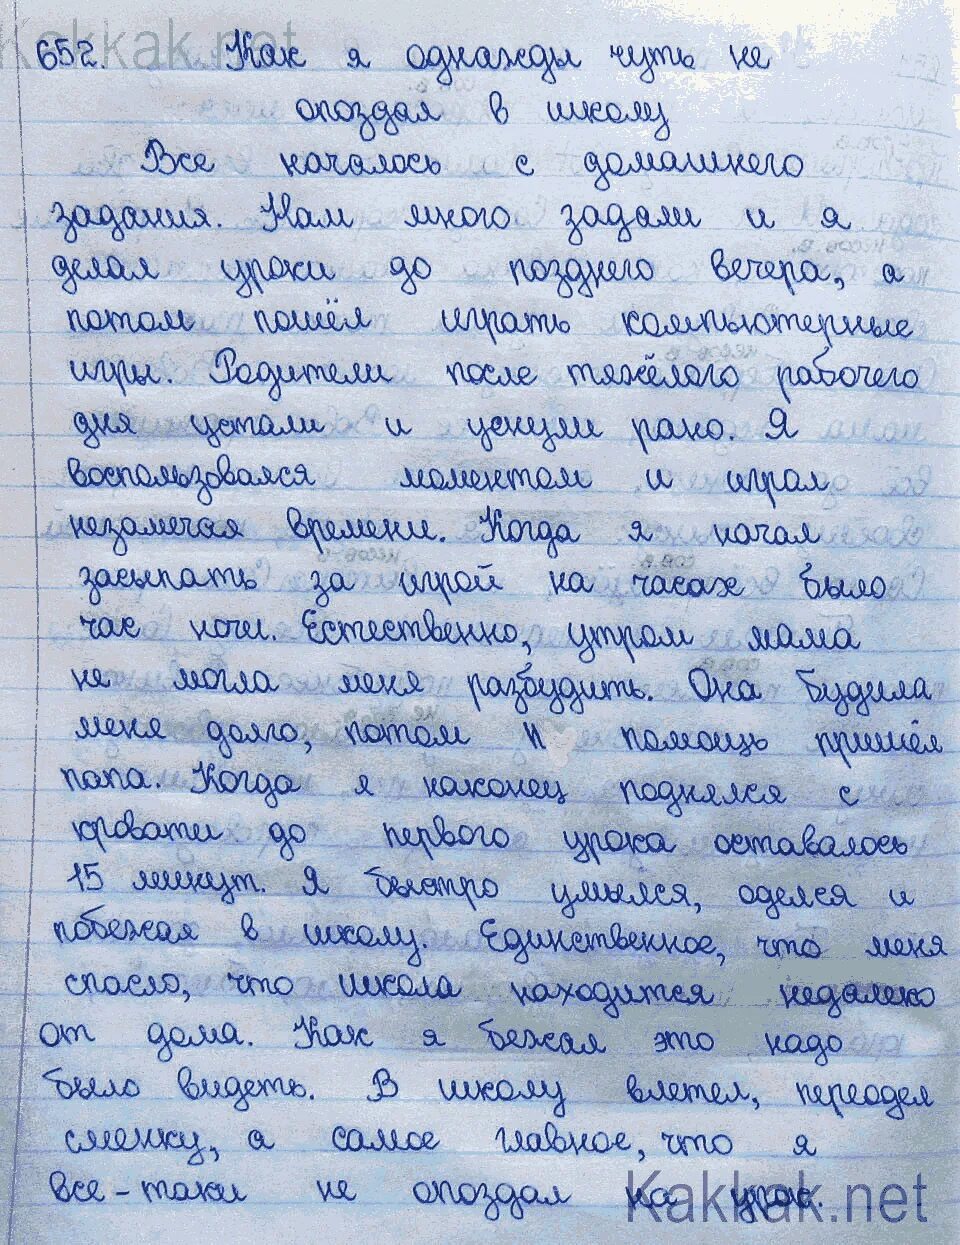 Kakkak.net
652. Как я однажды чуть не
опоздал в школу
Все началось с домашнего
задания. Нам много задали и я
делал уроки до позднего вечера, а
потом пошёл играть компьютерные
игры. Родители после тяжёлого рабочего
дня устали и уснули рано. Я
воспользовался моментом и играл
незамечая времени. Когда я начал
засыпать за игрой на часах было
час ночи. Естественно, утром мама
не могла меня разбудить. Она будила
меня долго, потом н помощь пришёл
папа. Когда я наконец поднялся с
кровати до первого урока оставалось
15 минут. Я быстро умылся, оделся и
побежал в школу. Единственное, что меня
спасло, что школа находится недалеко
от дома. Как я бежал это надо
было видеть. В школу влетел, переодел
сменку, а самое главное, что я
все-таки не опоздал на урок.
Kakkak.net